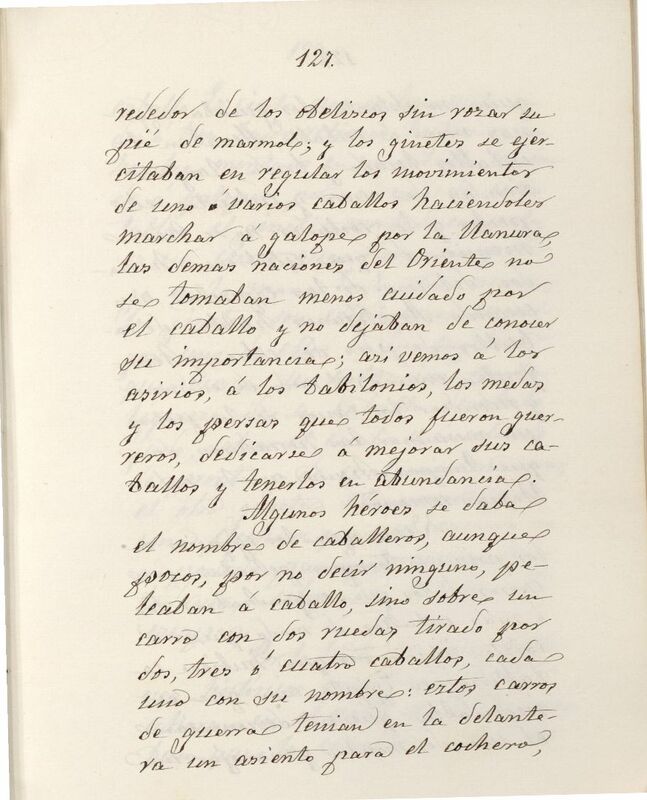 127.
rededor de los obeliscos sin rozar su
pié de marmol; y los ginetes se ejer-
citaban en regular los movimientos
de uno ó varios caballos haciendoles
marchar á galope por la llanura,
las demas naciones del Oriente no
se tomaban menos cuidado por
el caballo y no dejaban de conocer
su importancia; asi vemos á los
asirios, á los babilonios, los medas
y los persas que todos fueron guer-
reros, dedicarse á mejorar sus ca-
ballos y tenerlos en abundancia.
Algunos héroes se daba
el nombre de caballeros, aunque
pocos, por no decir ninguno, pe-
leaban á caballo, sino sobre un
carro con dos ruedas tirado por
dos, tres ó cuatro caballos, cada
uno con su nombre: estos carros
de guerra tenian en la delante-
ra un asiento para el cochero,